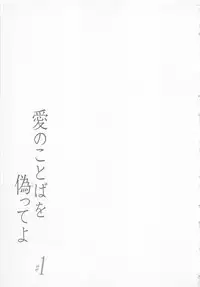 愛のことばを
偽ってよ
#1